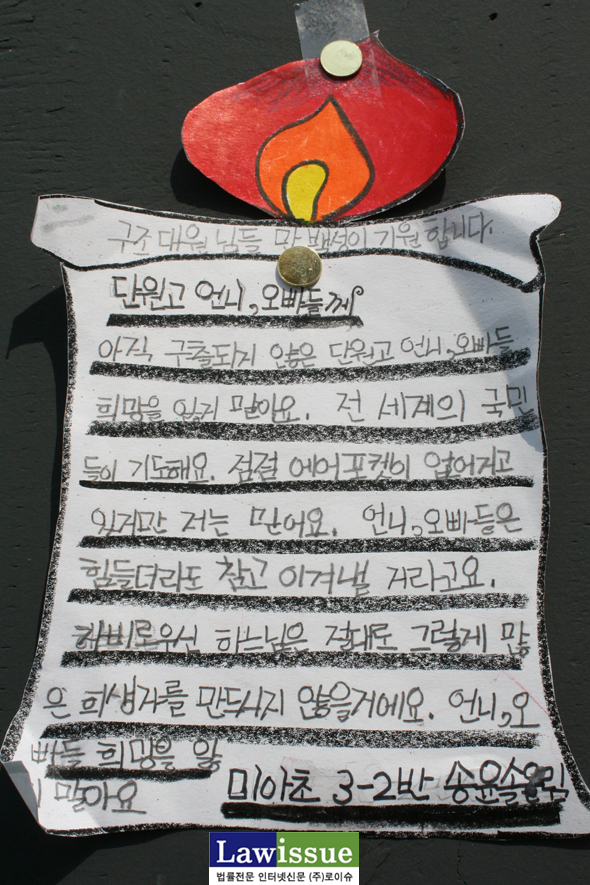 구조 대원 님들 무사히 기원 합니다.
단원고 언니,오빠들께
아직 구출되지 않은 단원고 언니,오빠들
희망을 잃지 말아요. 전 세계의 국민
들이 기도해요. 점점 에어포켓이 없어지고
있지만 저는 믿어요. 언니,오빠들은
힘들더라도 참고 이겨낼 거라고요.
하느님은 절대로 그렇게 많
은 희생자를 만드시지 않을거에요. 언니,오
빠들 희망을 잃
지 말아요
미아초 3-2반 송윤솔
Lawissue
법률전문 인터넷신문 (주)로이슈